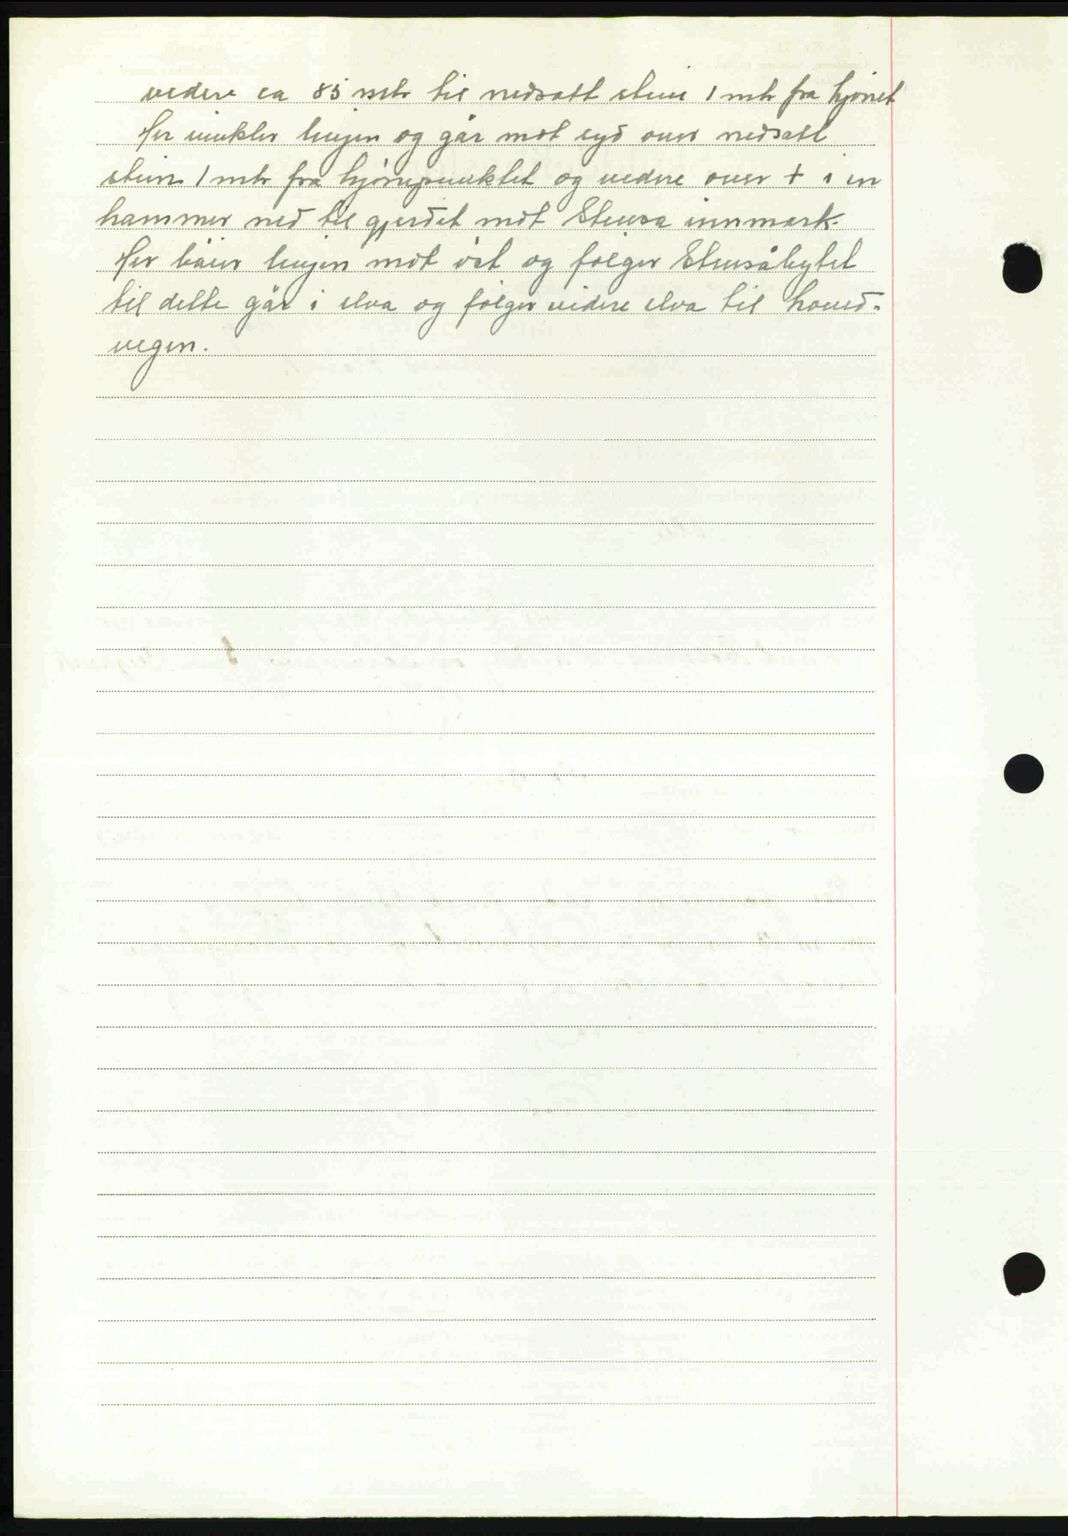 videre ca 85 mtr til nedsatt stein 1 mtr fra hjørnet
Her vinkler linjen og går mot syd over nedsatt
stein 1 mtr fra hjørnepunktet og videre over + i en
hammer ned til gjerdet mot Stensa innmark.
Her bäier linjen mot øst og følger Stensåbytet
til dette går i elva og følger videre elva til hoved-
vegen.